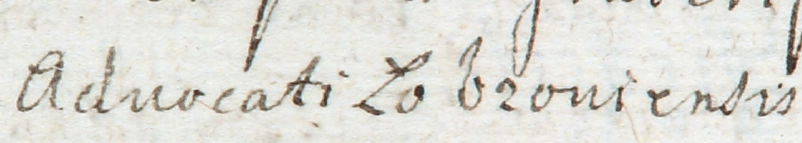 Advocati Lobroviensis